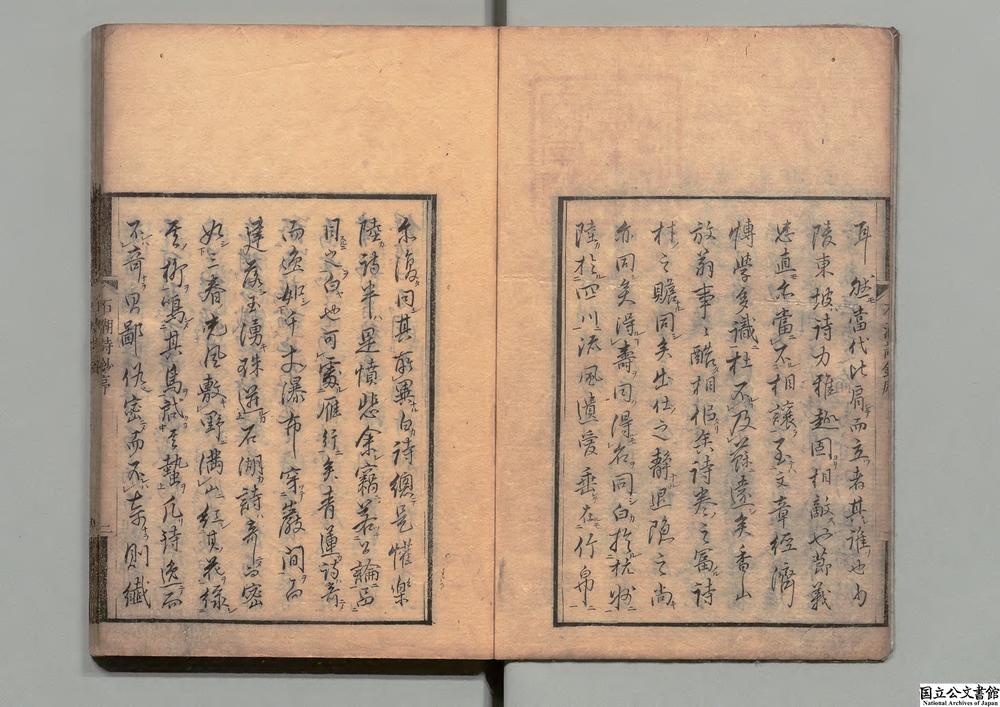 耳然當代比肩而立者其誰也少
陵東坡詩力雅趣固相敵也節義
忠直亦當不相讓至文章經濟
博學多識杜不及蘇遠矣香山
放翁事々酷相似矣詩卷之富詩
材之贍同矣出仕之靜退隱之尚
亦同矣得壽同得名同白於杭州
陸於四川流風遺愛垂在竹帛
亦復同其所異白詩總是懽樂
陸詩半是憤悲余竊若公論品
目之白也可雁行矣青蓮詩奇
而逸如千丈瀑布穿巖間而
建落玉湧珠迸石湖詩奇而密
如三春光風敷野滿山紅其花綠
其柳鳴其鳥其蟄凡詩逸而
不奇則鄙俗密而不奇則纖
石湖詩鈔序
二
国立公文書館
National Archives of Japan